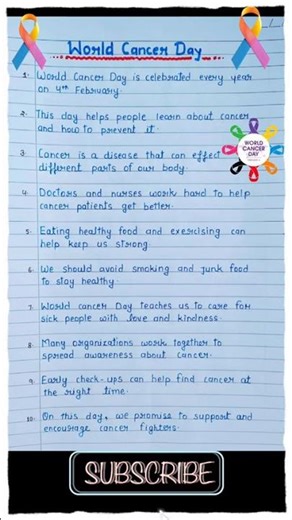 World Cancer Day
1. World Cancer Day is celebrated every year
on 4th February.
2. This day helps people learn about cancer
and how to prevent it.
WORLD
CANCER
DAY
3. Cancer is a disease that can effect
different parts of our body.
4. Doctors and nurses work hard to help
cancer patients get better.
5. Eating healthy food and exercising can
help keep us strong.
6. We should avoid smoking and junk food
to stay healthy.
7. World cancer Day teaches us to care for
sick people with love and kindness.
8. Many organizations work together to
spread awareness about cancer.
9. Early check-ups can help find cancer at
the right time.
10. On this day, we promise to support and
encourage cancer fighters.
SUBSCRIBE